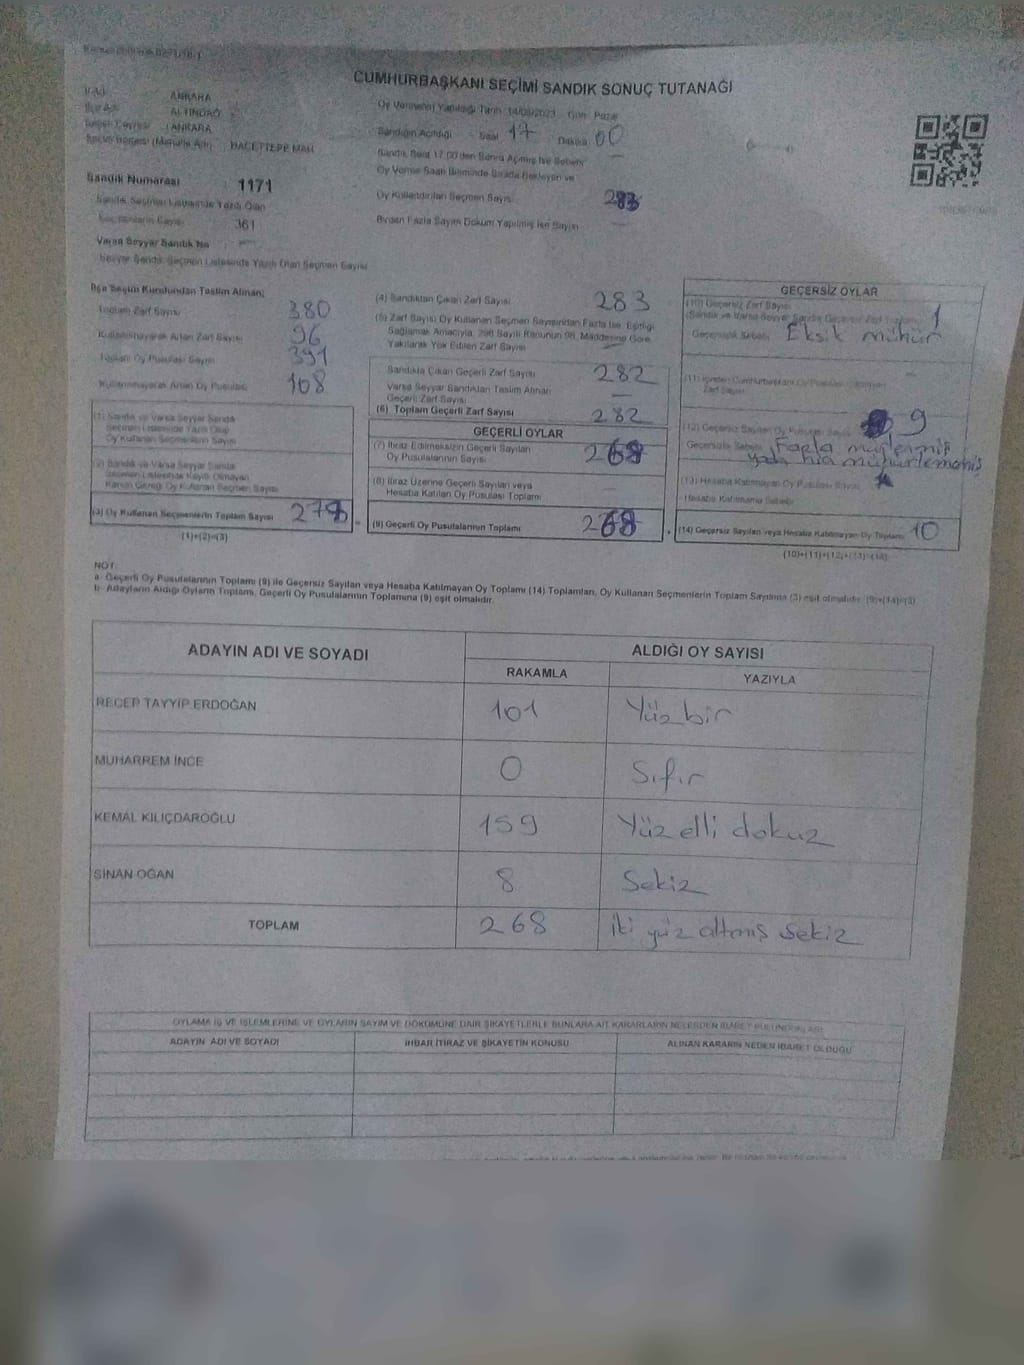 CUMHURBAŞKANI SEÇİMİ SANDIK SONUÇ TUTANAĞI
ANKARA
ALTINDAĞ
ANKARA
HACETTEPE MAH.
Oy Vermenin Yapıldığı Tarih 14/05/2023 Gün Pazar
Sandığın Açıldığı Saat 17 Dakika 00
Sandık Saat 17.00'den Sonra Açılmış İse Sebebi
Oy Verme Saati Bitiminde Sırada Bekleyen ve
Oy Kullandırılan Seçmen Sayısı
Birden Fazla Sayım Döküm Yapılmış İse Sayısı
Sandık Numarası : 1171
Sandık Seçmen Listesinde Yazılı Olan
Seçmenlerin Sayısı 361
Varsa Seyyar Sandık No
Seyyar Sandık Seçmen Listesinde Yazılı Olan Seçmen Sayısı
İlçe Seçim Kurulundan Teslim Alınan;
Toplam Zarf Sayısı 380
Kullanılmayarak Artan Zarf Sayısı 96
Toplam Oy Pusulası Sayısı 391
Kullanılmayarak Artan Oy Pusulası 108
(1) Sandık ve Varsa Seyyar Sandık
Seçmen Listesinde Yazılı Olup
Oy Kullanan Seçmenlerin Sayısı
(2) Sandık ve Varsa Seyyar Sandık
Seçmen Listesinde Kayıtlı Olmayan
Kanun Gereği Oy Kullanan Seçmen Sayısı
(3) Oy Kullanan Seçmenlerin Toplam Sayısı
(1)+(2)=(3)
(4) Sandıktan Çıkan Zarf Sayısı 283
(5) Zarf Sayısı Oy Kullanan Seçmen Sayısından Fazla İse, Eşitliği
Sağlamak Amacıyla, 298 Sayılı Kanunun 98. Maddesine Göre
Yakılarak Yok Edilen Zarf Sayısı
Sandıkta Çıkan Geçerli Zarf Sayısı 282
Varsa Seyyar Sandıktan Teslim Alınan
Geçerli Zarf Sayısı
(6) Toplam Geçerli Zarf Sayısı 282
GEÇERLİ OYLAR
(7) İtiraz Edilmeksizin Geçerli Sayılan
Oy Pusulalarının Sayısı 268
(8) İtiraz Üzerine Geçerli Sayılan veya
Hesaba Katılan Oy Pusulası Toplamı
(9) Geçerli Oy Pusulalarının Toplamı 268
GEÇERSİZ OYLAR
(10) Geçersiz Zarf Sayısı
1
Geçersizlik Sebebi Eksik mühür
Zarf Sayısı
(12) Geçersiz Sayılan Oy Pusulası Sayısı 9
Geçersizlik Sebebi Fazla
(13) Hesaba Katılmayan Oy Pusulası Sayısı
Hesaba Katılmama Sebebi
(14) Geçersiz Sayılan veya Hesaba Katılmayan Oy Toplamı 10
(10)+(11)+(12)+(13)=(14)
NOT:
a- Geçerli Oy Pusulalarının Toplamı (9) ile Geçersiz Sayılan veya Hesaba Katılmayan Oy Toplamı (14) Toplamları, Oy Kullanan Seçmenlerin Toplam Sayısına (3) eşit olmalıdır. (9)+(14)=(3)
b- Adayların Aldığı Oyların Toplamı, Geçerli Oy Pusulalarının Toplamına (9) eşit olmalıdır.
ADAYIN ADI VE SOYADI ALDIĞI OY SAYISI
RAKAMLA YAZIYLA
RECEP TAYYİP ERDOĞAN 101 Yüzbir
MUHARREM İNCE 0 Sıfır
KEMAL KILIÇDAROĞLU 159 Yüz elli dokuz
SİNAN OĞAN 8 Sekiz
TOPLAM 268 iki yüz altmış sekiz
OYLAMA İŞ VE İŞLEMLERİNE VE OYLARIN SAYIM VE DÖKÜMÜNE DAİR ŞİKAYETLERLE BUNLARA AİT KARARLARIN NELERDEN İBARET BULUNDUKLARI
ADAYIN ADI VE SOYADI İHBAR İTİRAZ VE ŞİKAYETİN KONUSU ALINAN KARARIN NEDEN İBARET OLDUĞU